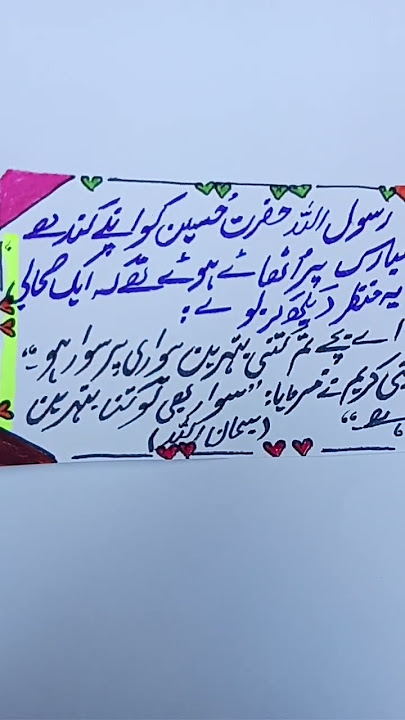 رسول اللہ حضرت حُسین کو اپنے کندھے
مبارک پر اُٹھائے ہوئے تھے کہ ایک صحابی
یہ منظر دیکھ کر بولے:
اے بچے تم کتنی بہترین سواری پر سوار ہو۔"
نبی کریم نے فرمایا: "سوار بھی تو کتنا بہترین
ہے"
(سبحان اللہ)